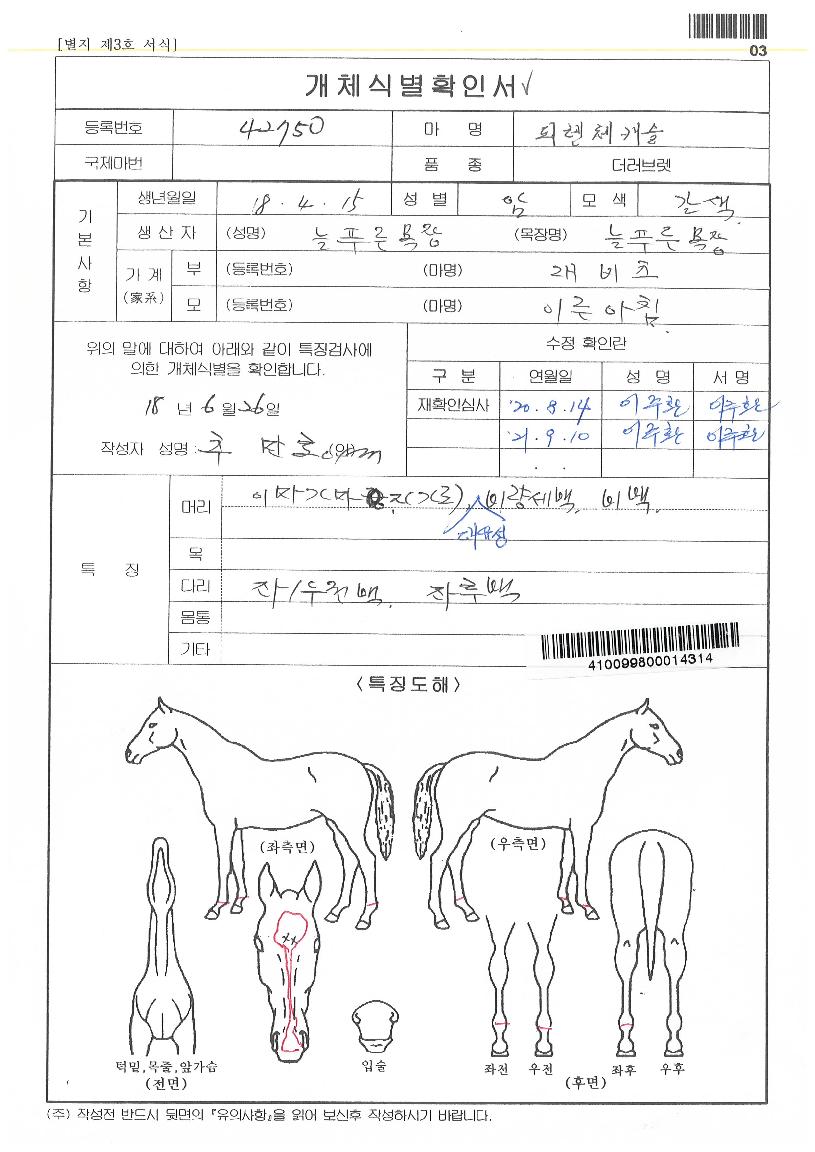 [별지 제3호 서식]
03
개체식별확인서 √
등록번호 42750 마 명 피렌체캐슬
국제마번 품 종 더러브렛
기본사항
생년월일 18. 4. 15 성 별 암 모 색 갈색
생 산 자 (성명) 늘푸른목장 (목장명) 늘푸른목장
가 계 (家系) 부 (등록번호) (마명) 래비초
모 (등록번호) (마명) 이른아침
위의 말에 대하여 아래와 같이 특징검사에
의한 개체식별을 확인합니다.
18 년 6 월 26 일
작성자 성명 : 추
수정 확인란
구 분 연월일 성 명 서 명
재확인심사 '20. 8. 14 이주환 이주환
'21. 9. 10 이주환 이주환
. .
특 징
머리 비량세백, 비백.
대유성
목
다리 좌/우전백, 좌후백
몸통
기타
410099800014314
<특징도해>
(좌측면)
(우측면)
턱밑,목줄,앞가슴
(전면)
입술
좌전 우전
좌후 우후
(후면)
(주) 작성전 반드시 뒷면의 『유의사항』을 읽어 보신후 작성하시기 바랍니다.